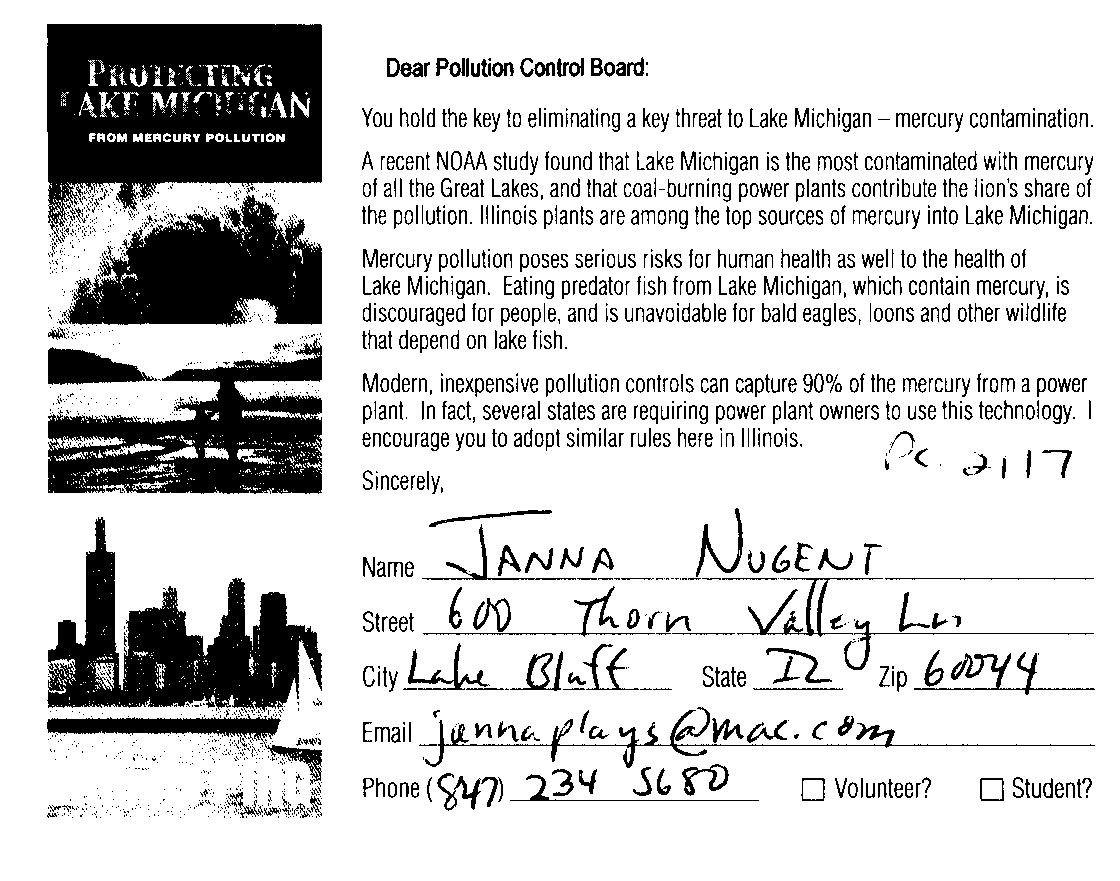 PROTECTING
LAKE MICHIGAN
FROM MERCURY POLLUTION
Dear Pollution Control Board:
You hold the key to eliminating a key threat to Lake Michigan – mercury contamination.
A recent NOAA study found that Lake Michigan is the most contaminated with mercury
of all the Great Lakes, and that coal-burning power plants contribute the lion's share of
the pollution. Illinois plants are among the top sources of mercury into Lake Michigan.
Mercury pollution poses serious risks for human health as well to the health of
Lake Michigan. Eating predator fish from Lake Michigan, which contain mercury, is
discouraged for people, and is unavoidable for bald eagles, loons and other wildlife
that depend on lake fish.
Modern, inexpensive pollution controls can capture 90% of the mercury from a power
plant. In fact, several states are requiring power plant owners to use this technology. I
encourage you to adopt similar rules here in Illinois.
PC. 2117
Sincerely,
Name JANNA NUGENT
Street 600 Thorn Valley Ln
City Lake Bluff State IL Zip 60044
Email jannaplays@mac.com
Phone (847) 234 5680 Volunteer? Student?